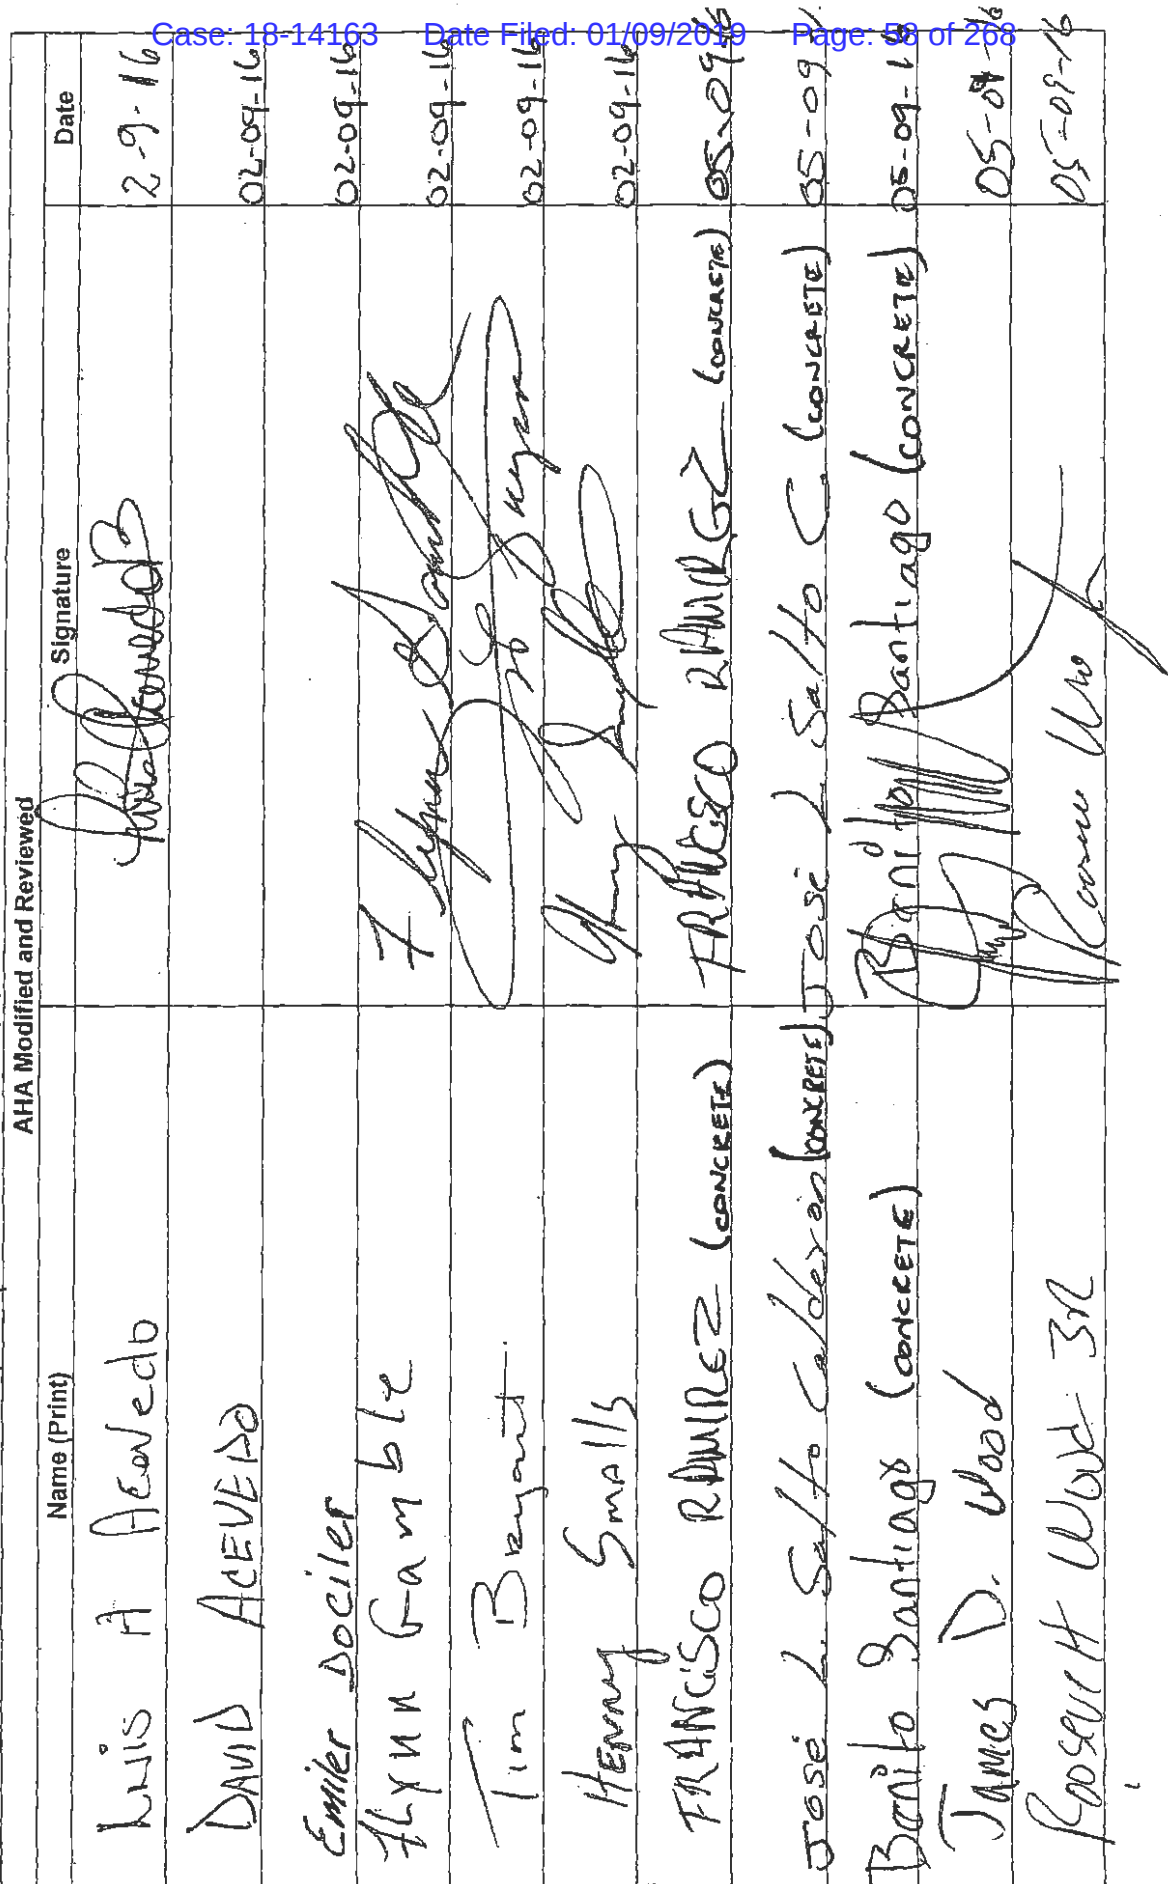 Case: 18-14163 Date Filed: 01/09/2019 Page: 58 of 268
AHA Modified and Reviewed
Name (Print) Signature Date
Luis A Acevedo 2-9-16
DAVID ACEVEDO 02-09-16
Emiler Dociler 02-09-16
Flynn Gamble Flynn Gamble 02-09-16
Tim Bryant. 02-09-16
HENRY Smalls Henry Smalls 02-09-16
FRANCISCO RAMIREZ (CONCRETE) FRANCISCO RAMIREZ (CONCRETE) 05-09-16
José L. Salto Calderon (CONCRETE) José L Salto C. (CONCRETE) 05-09-1
Benito Santiago (CONCRETE) Benito Santiago (CONCRETE) 05-09-16
James D. Wood 05-09-16
Roosevelt Wood 3R 05-09-16